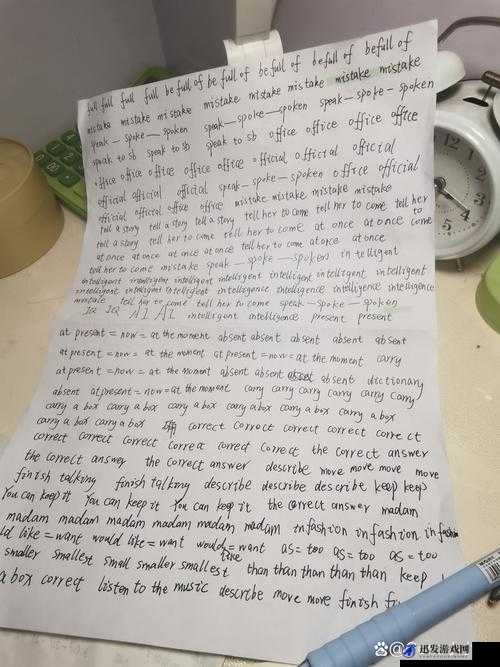 full full full full be full of be full of be full of be full of be full of
mistake mistake mistake mistake mistake mistake mistake mistake mistake
speak—spoke—spoken speak—spoke—spoken speak—spoke—spoken
speak to sb speak to sb speak to sb office office office office
office office office office office official official official
official official official speak—spoke—spoken office official
official official office office mistake mistake mistake mistake
tell a story tell a story tell a story tell her to come tell her to
tell a story tell her to come tell her to come at once at once to come
at once at once at once at once tell her to come at once at once
tell her to come mistake speak—spoke—spoken intelligent
intelligent intelligent intelligent intelligent intelligent intelligent intelligent
intelligent intelligent intelligent intelligence intelligence intelligence intelligence
mistake tell her to come tell her to come speak—spoke—spoken
IQ IQ AI AI intelligent intelligence present present
at present=now=at the moment absent absent absent absent absent
at present=now=at the moment at present=now=at the moment carry
at present=now=at the moment absent absent absent dictionary
absent at present=now=at the moment carry carry carry carry carry carry
carry a box carry a box carry a box carry a box carry a box carry a box
carry a box carry a box correct correct correct correct correct
correct correct correct correct correct correct the correct answer
the correct answer the correct answer describe move move move move
finish talking finish talking describe describe describe keep keep
You can keep it You can keep it You can keep it the correct answer madam
madam madam madam madam madam madam in fashion in fashion in fashion
ld like=want would like=want would like=want as=too as=too as=too
smaller smallest small smaller smallest than than than than than keep
a box correct listen to the music describe move move finish
百度
迅发游戏网